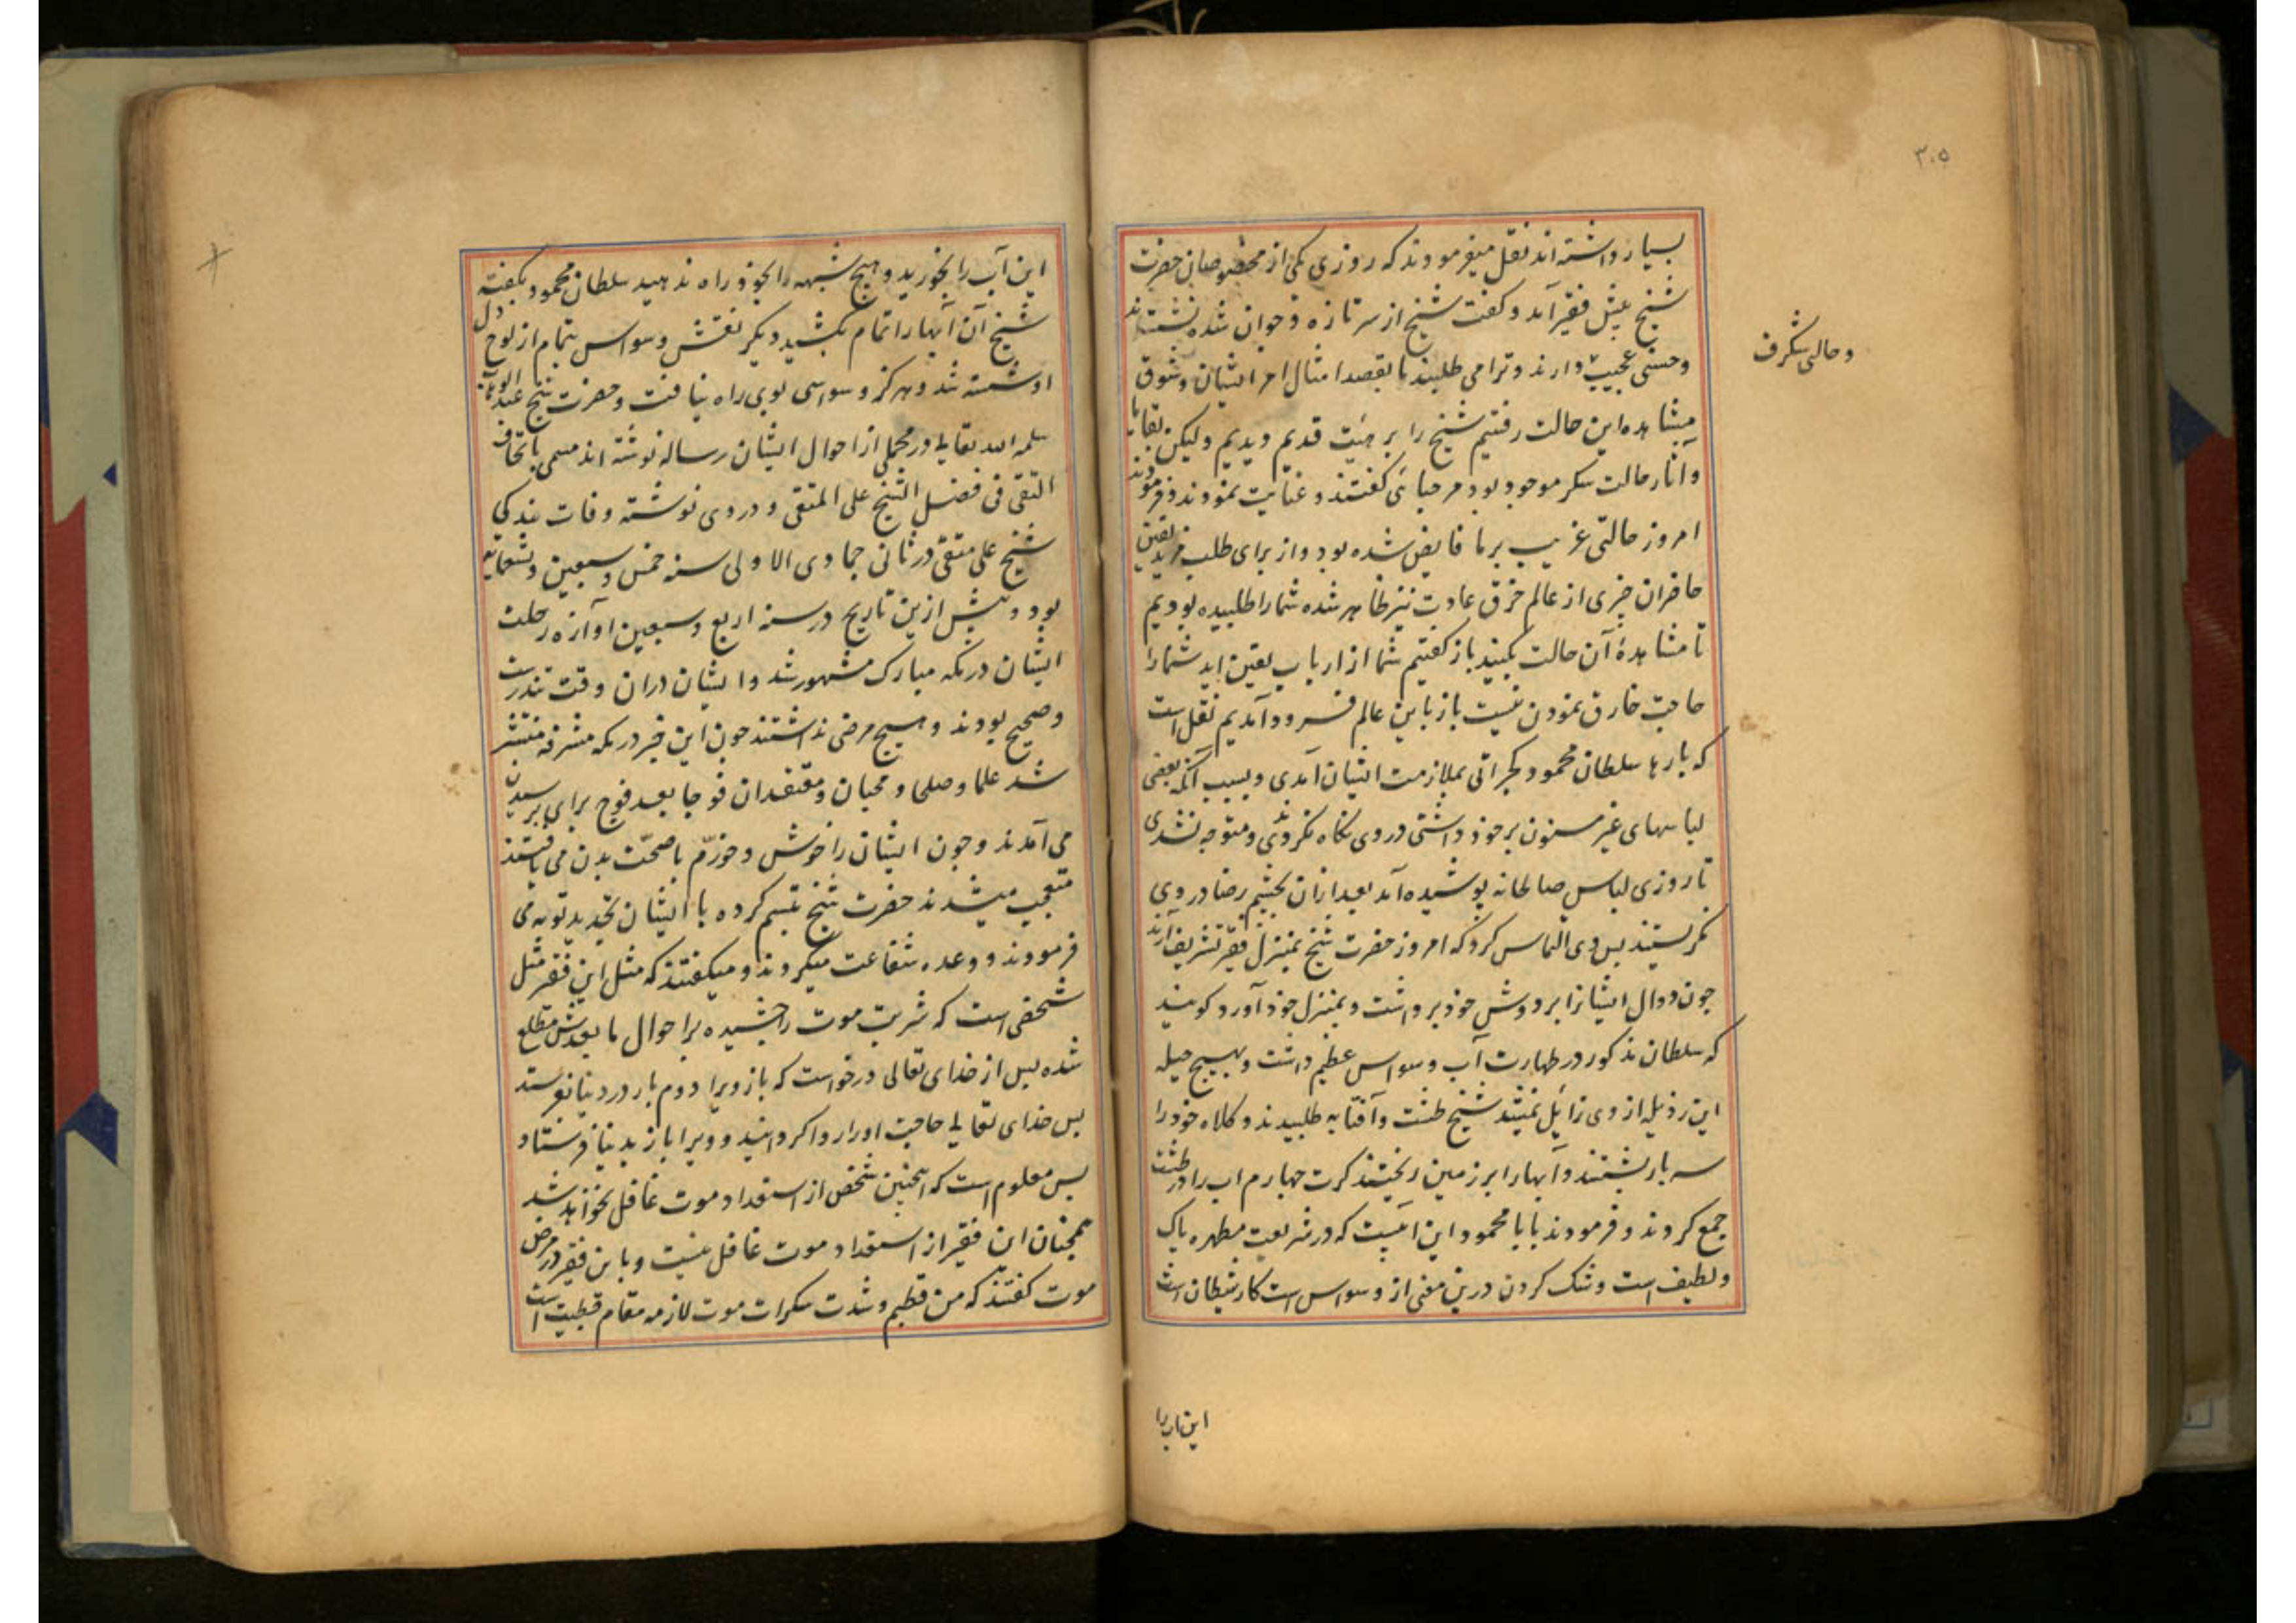 ۳۰۵
بسیار داشته اند نقل میفرمودند که روزی یکی از مخصوصان حضرت
شیخ پیش فقیر آمد و گفت شیخ از سر تازه و جوان شده نشسته اند
وحالی شگرف
و حسنی عجیب دارند و ترا می طلبند ما بقصد امثال امر ایشان و شوق
مشاهده این حالت رفتیم شیخ را بر هیئت قدیم دیدیم ولیکن بقایا
و آثار حالت سکر موجود بود مرحبائی گفتند و عنایت نمودند و فرمودند
امروز حالتی غریب بر ما فایض شده بود و از برای طلب مزید یقین
حاضران چیزی از عالم خرق عادت نیز ظاهر شده شما را طلبیده بودیم
تا مشاهدهٔ آن حالت بکنید باز گفتیم شما از ارباب یقین اید شما را
حاجت خارق نمودن نیست باز باین عالم فرود آمدیم نقل است
که بارها سلطان محمود گجراتی بملازمت ایشان آمدی و بسبب آنکه بعضی
لباسهای غیر مسنون بر خود داشتی در وی نگاه نکردندی و متوجه نشدی
تا روزی لباس صالحانه پوشیده آمد بعد ازان بچشم رضا در وی
نگریستند پس وی التماس کرد که امروز حضرت شیخ بمنزل فقیر تشریف آرند
چون دوال ایشانرا بر دوش خود برداشت و بمنزل خود آورد گویند
که سلطان مذکور در طهارت آب وسواس عظیم داشت و بهیچ حیله
این رذیله از وی زائل نمیشد شیخ طشت و آفتابه طلبیدند و کلاه خود را
سه بار بشستند و آبها را بر زمین ریختند کرت چهارم اب را در طشت
جمع کردند و فرمودند بابا محمود این آبیست که در شریعت مطهره پاک
و لطیف است و شک کردن درین معنی از وسواس است کار شیطان است
این اب را
این آب را بخورید و هیچ شبهه را بخود راه ندهید سلطان محمود بگفته
شیخ آن آبها را تمام بکشید دیگر نقش وسواس بتمام از لوح دل
او شسته شد و هرگز وسواسی بوی راه نیافت و حضرت شیخ عبد الوهاب
سلمه الله تعالی در مجملی از احوال ایشان رساله نوشته اند مسمی باتحاف
التقی فی فضل الشیخ علی المتقی و در وی نوشته وفات بندگی
شیخ علی متقی در ثانی جمادی الاولی سنه خمس و سبعین و تسعمایه
بود و پیش ازین تاریخ در سنه اربع و سبعین آوازه رحلت
ایشان در مکه مبارک مشهور شد و ایشان دران وقت تندرست
و صحیح بودند و هیچ مرضی نداشتند چون این خبر در مکه مشرفه منتشر
شد علما و صلحا و محبان و معتقدان فوجا بعد فوج برای پرسیدن
می آمدند و چون ایشان را خوش و خورّم با صحّت بدن می یافتند
متعجب میشدند حضرت شیخ تبسم کرده با ایشان تجدید توبه می
فرمودند و وعده شفاعت میکردند و میگفتند که مثل این فقیر مثل
شخصی است که شربت موت را چشیده بر احوال ما بعدش مطلع
شده پس از خدای تعالی درخواست که باز ویرا دوم بار در دنیا بفرستد
پس خدای تعالی حاجت اورا روا گردانید و ویرا باز بدنیا فرستاد
پس معلوم است که اینچنین شخص از استعداد موت غافل نخواهد شد
همچنان این فقیر از استعداد موت غافل نیست و باین فقیر در مرض
موت گفتند که من قطبم و شدت سکرات موت لازمه مقام قطبیت است